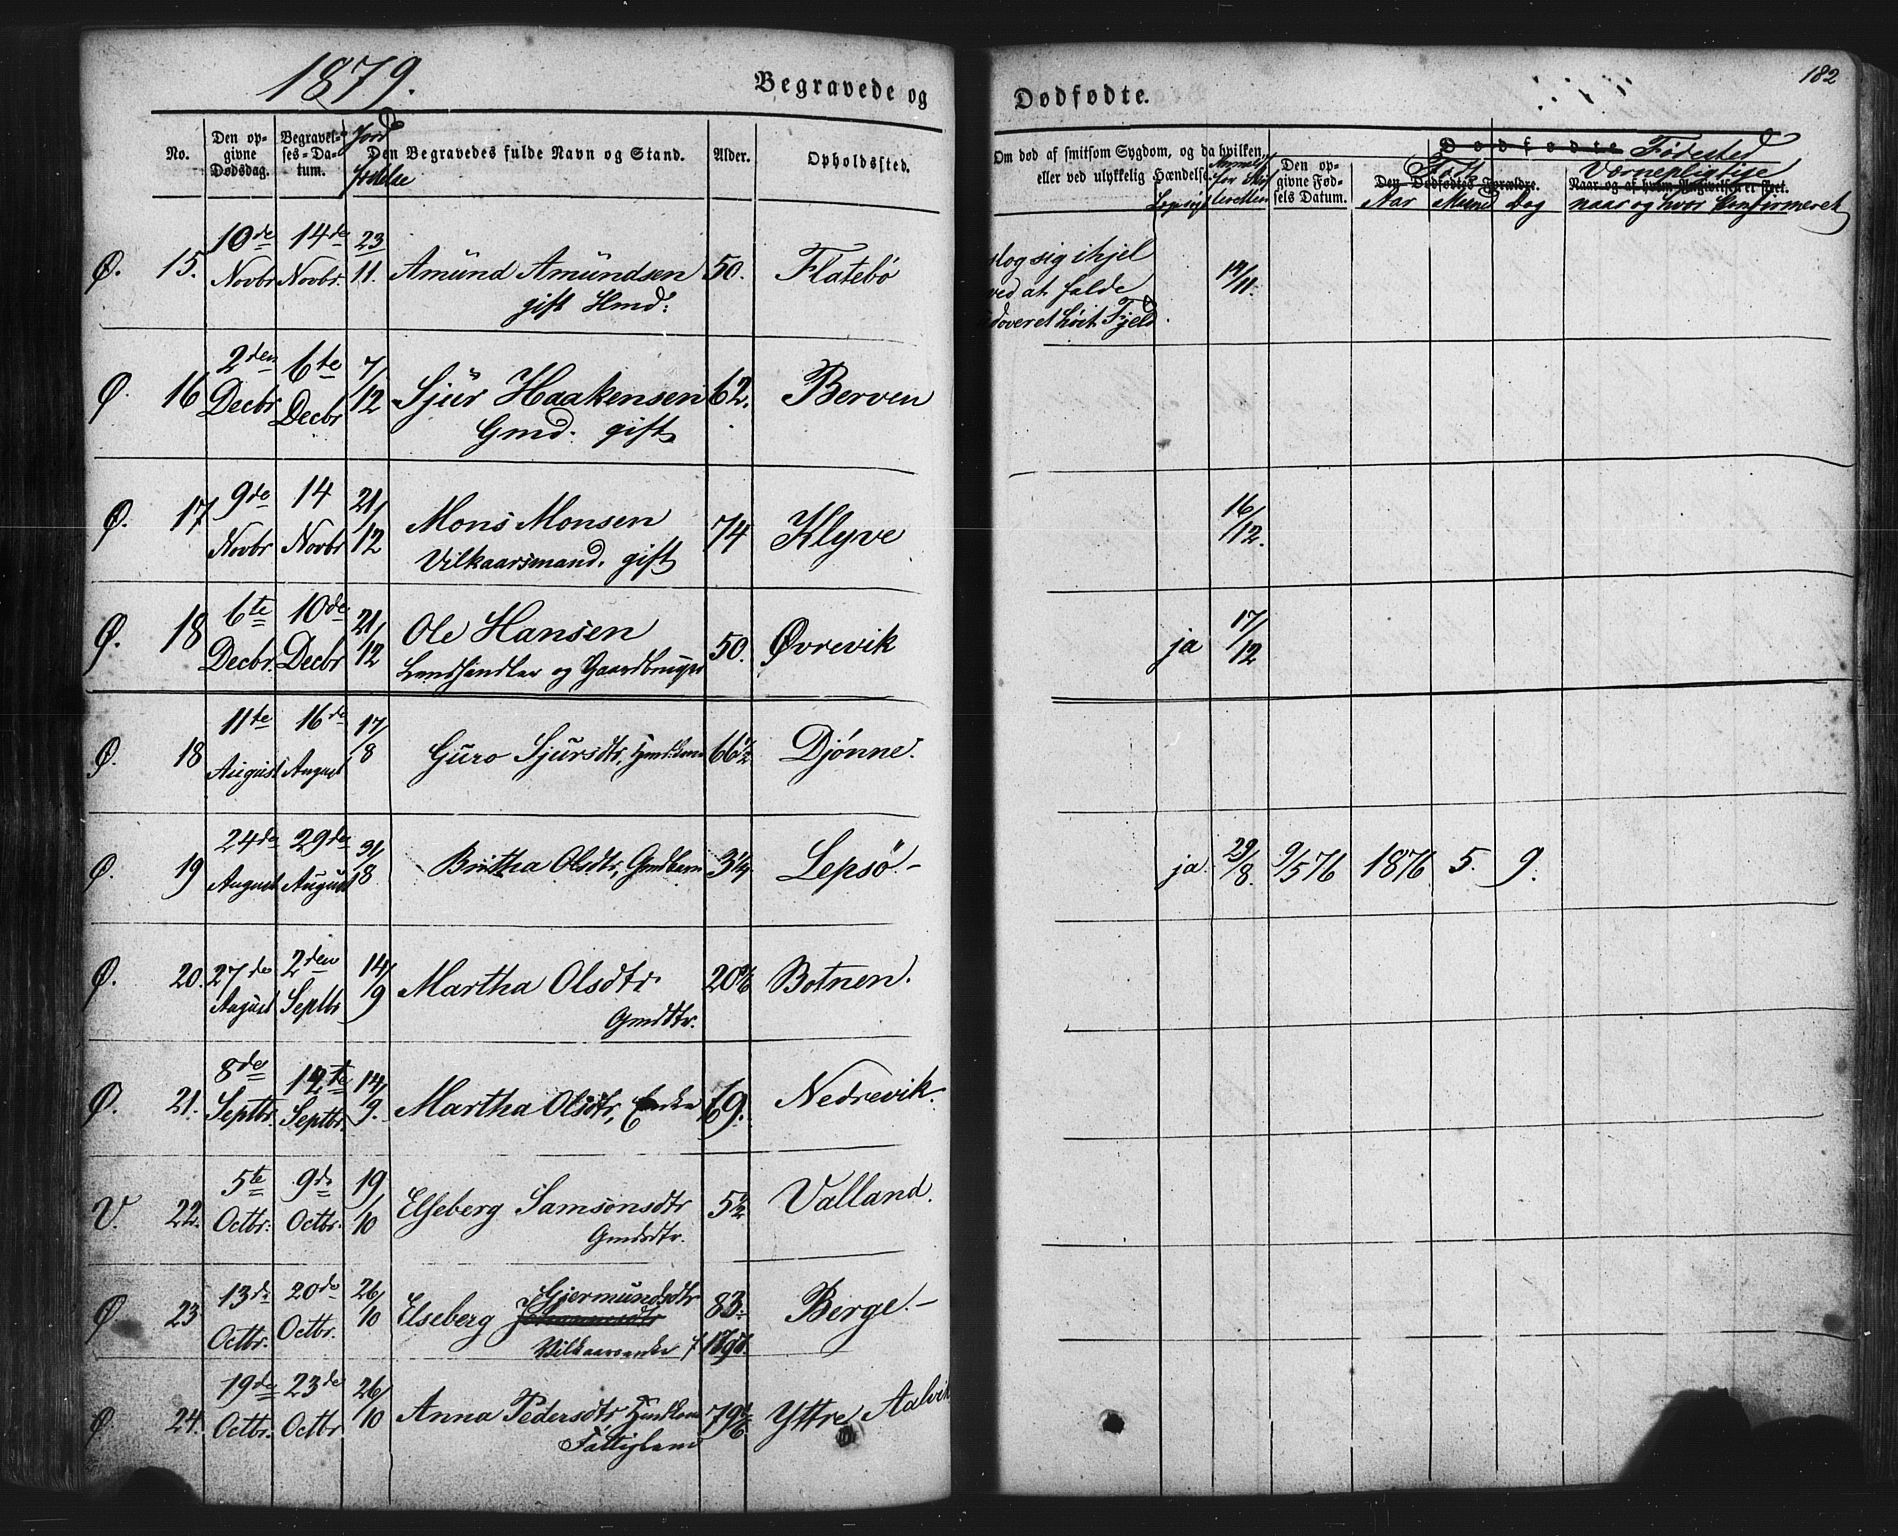 1879.
Begravede og
Dødfødte.
182
No.
Den opgivne Dødsdag.
Begravelses-Datum.
Jord
Den Begravedes fulde Navn og Stand.
Alder.
Opholdssted.
Om død af smitsom Sygdom, og da hvilken,
eller ved ulykkelig Hændelse.
Den opgivne Fødsels Datum.
Dødfødte Fødested
Født Værnepligtige
Den Dødfødtes Forældre. Naar og af hvem Angivelsen er skeet.
Aar Maaned Dag naar og hvor konfirmeret
Ø. 15. 10de Novbr 14de Novbr. 23/11. Amünd Amündsen 50. Flatebø slog sig ihjel 14/11.
gift Hmd: ved at falde
udover et høit Fjeld.
Ø. 16 2den Decbr 6te Decbr 7/12 Sjür Haakensen 62. Berven
Gmd. gift
Ø. 17 9de Novbr 14 Novbr 21/12 Mons Monsen 74 Klyve 16/12.
Vilkaarsmand. gift
Ø. 18 6te Decbr. 10de Decbr 21/12 Ole Hansen 50. Øvrevik ja 17/12
Landhandler og Gaardbruger
Ø. 18 11te August 16de August 17/8 Güro Sjürsdtr, 66 1/2 Djønne.
Ø. 19 24de August 29de August 31/8 Brittha Olsdtr, Gmdbarn 3 1/4 Lepsö ja. 29/8. 9/5 76 1876 5. 9.
Ø. 20. 27de August 2den Septbr 14/9 Martha Olsdtr Botnen.
Gmddtr.
Ø. 21. 8de Septbr. 12te Septbr. 14/9. Martha Olsdtr, Enke 69. Nedrevik.
V. 22. 5te Octbr. 9de Octbr. 19/10 Elseberg Samsonsdtr Valland.
Gmdsdtr.
Ø. 23 13de Octbr. 20de Octbr. 26/10 Elseberg Gjermundsdtr 83. Berge.
Johannesdtr
Vilkaarsenke
Ø. 24. 19de Octbr. 23de Octbr 26/10 Anna Pedersdtr Yttre Aalvik
Fattiglem